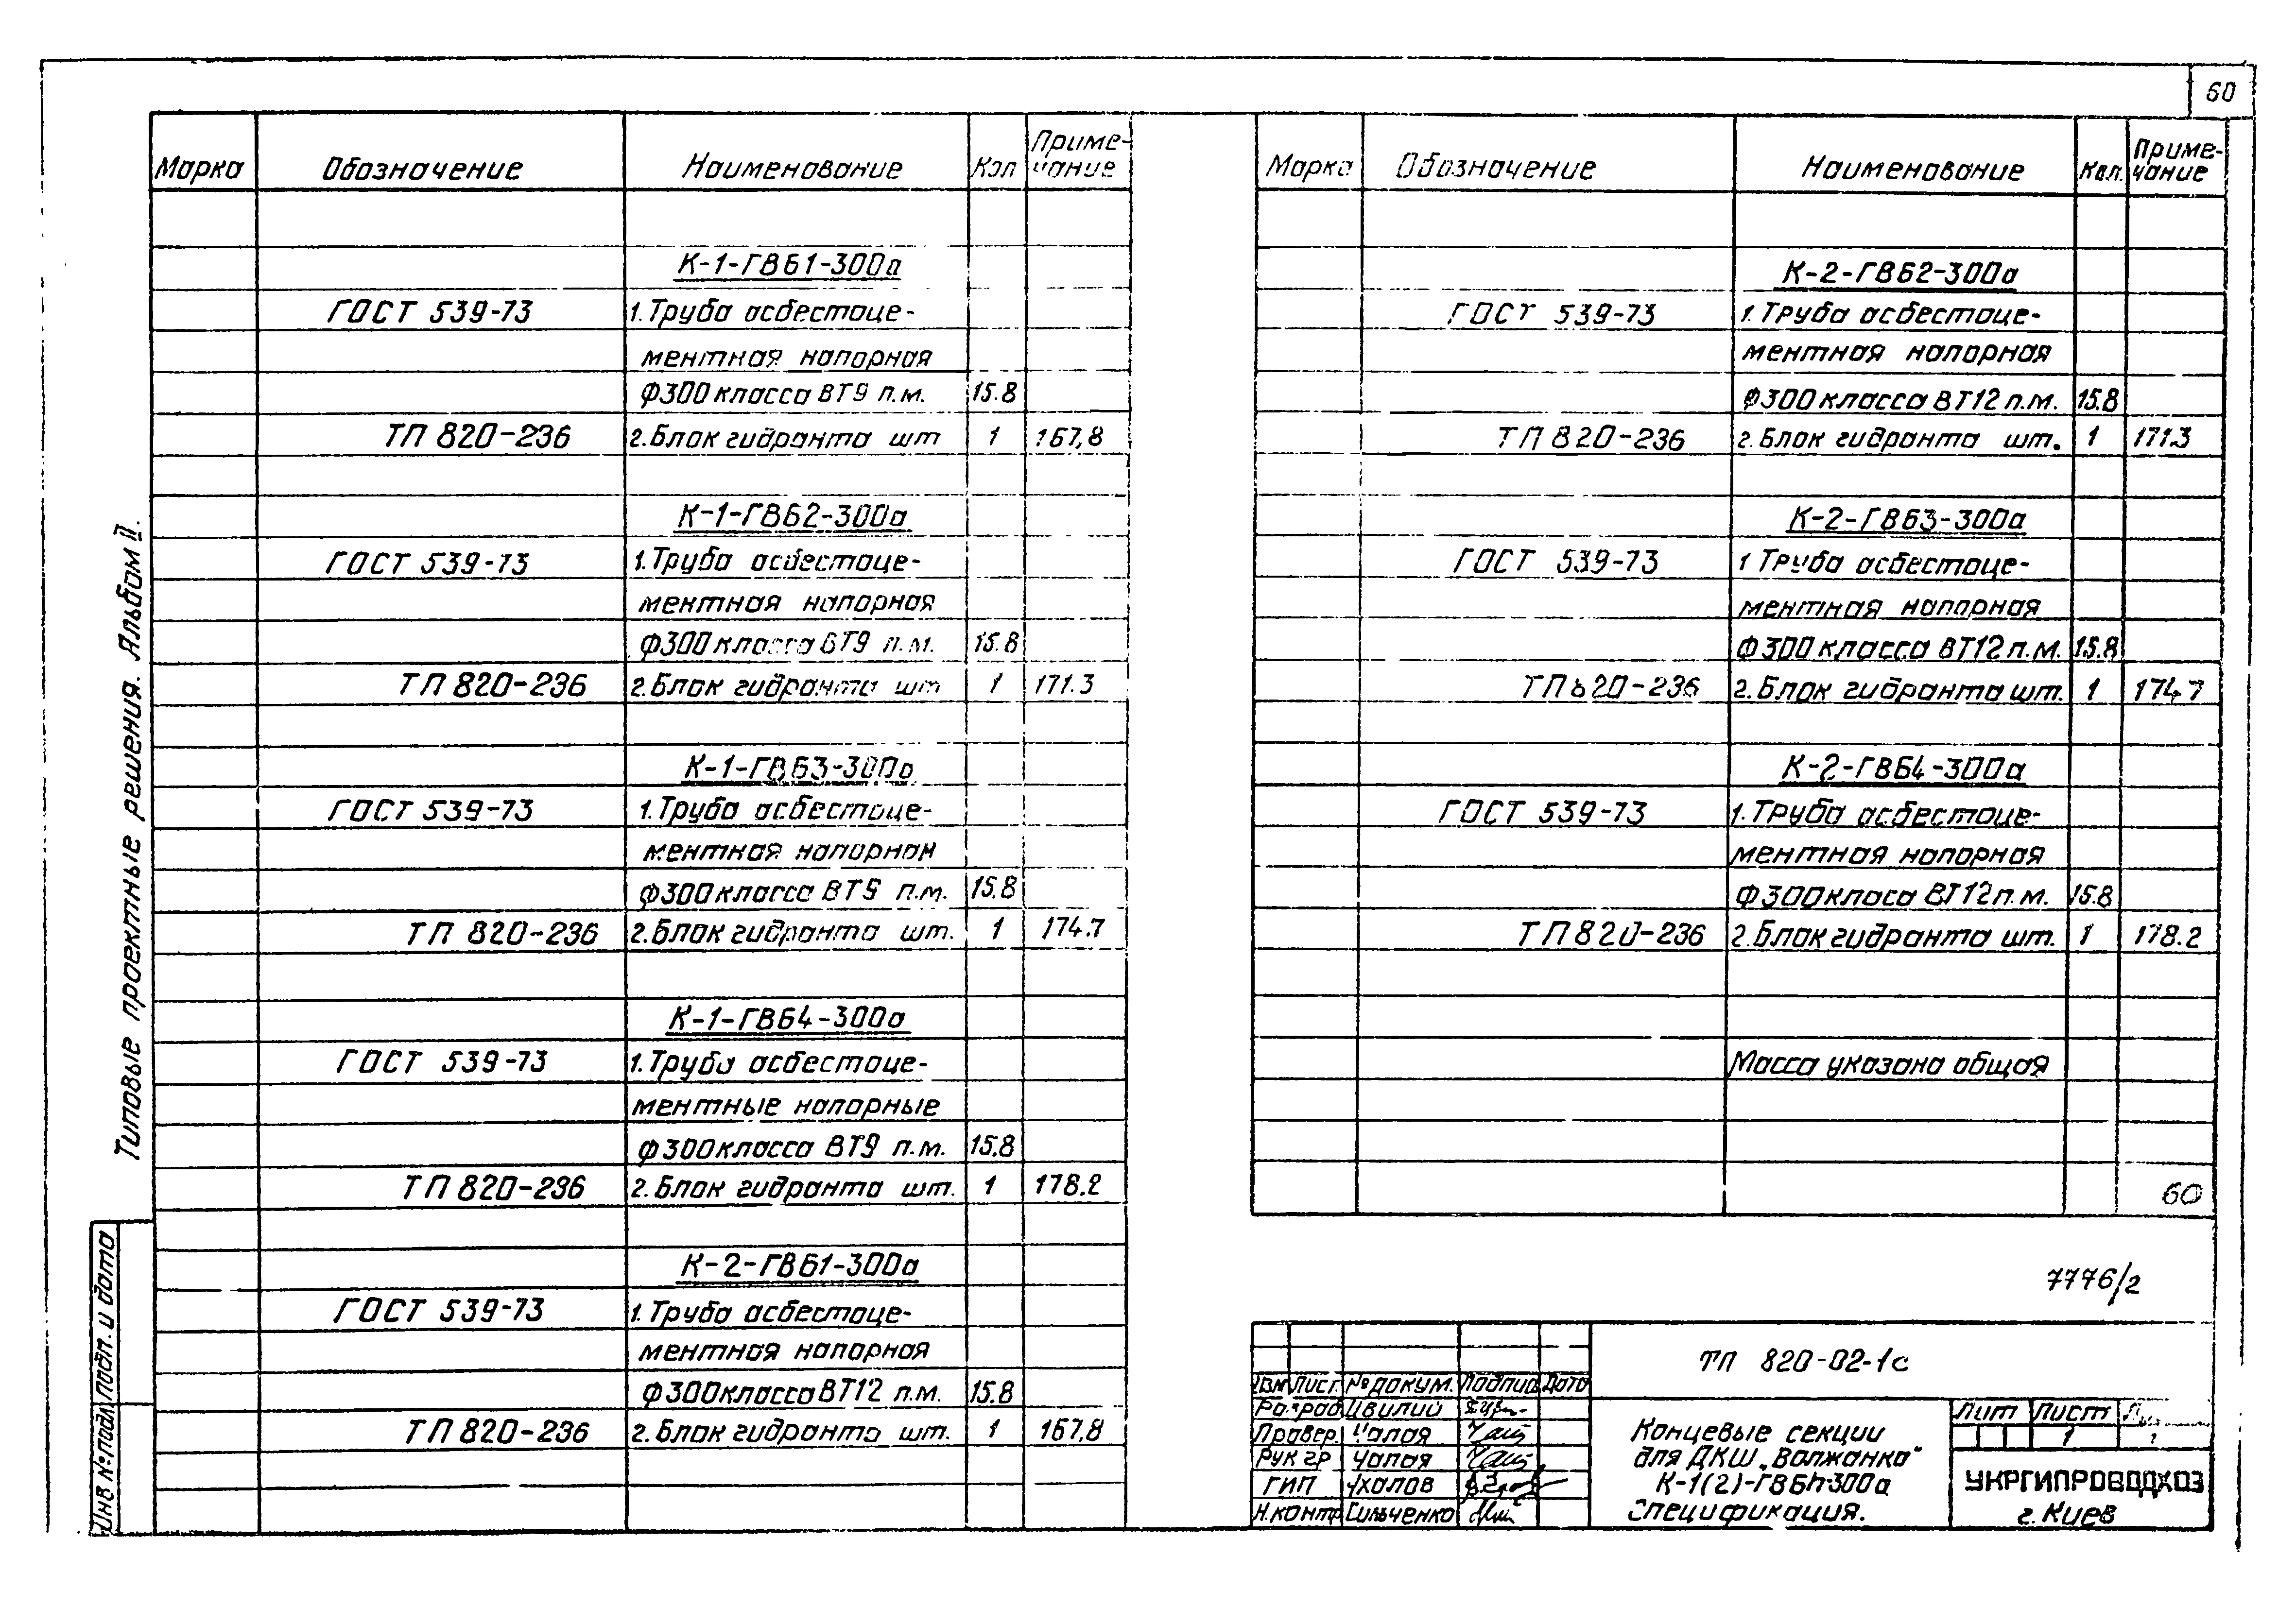 60
Марка Обозначение Наименование Кол Приме-
чание
К-1-ГВБ1-300а
ГОСТ 539-73 1. Труба асбестоце-
ментная напорная
Ф300 класса ВТ9 п.м. 15.8
ТП 820-236 2. Блок гидранта шт 1 167,8
К-1-ГВБ2-300а
ГОСТ 539-73 1. Труба асбестоце-
ментная напорная
Ф300 класса ВТ9 п.м. 15.8
ТП 820-236 2. Блок гидранта шт 1 171.3
К-1-ГВБ3-300а
ГОСТ 539-73 1. Труба асбестоце-
ментная напорная
Ф300 класса ВТ9 п.м. 15.8
ТП 820-236 2. Блок гидранта шт. 1 174.7
К-1-ГВБ4-300а
ГОСТ 539-73 1. Труба асбестоце-
ментные напорные
Ф300 класса ВТ9 п.м. 15.8
ТП 820-236 2. Блок гидранта шт. 1 178.2
К-2-ГВБ1-300а
ГОСТ 539-73 1. Труба асбестоце-
ментная напорная
Ф300 класса ВТ12 п.м. 15.8
ТП 820-236 2. Блок гидранта шт. 1 167.8
Марка Обозначение Наименование Кол. Приме-
чание
К-2-ГВБ2-300а
ГОСТ 539-73 1. Труба асбестоце-
ментная напорная
Ф300 класса ВТ12 п.м. 15.8
ТП 820-236 2. Блок гидранта шт. 1 171.3
К-2-ГВБ3-300а
ГОСТ 539-73 1 Труба асбестоце-
ментная напорная
Ф300 класса ВТ12 п.м. 15.8
ТП 820-236 2. Блок гидранта шт. 1 174.7
К-2-ГВБ4-300а
ГОСТ 539-73 1. Труба асбестоце-
ментная напорная
Ф300 класа ВТ12 п.м. 15.8
ТП 820-236 2. Блок гидранта шт. 1 178.2
Масса указана общая
60
7776/2
Типовые проектные решения. Альбом II.
Инв № подл Подп. и дата
Изм Лист № докум. Подпис Дата
Разраб Цвилий
Провер. Чалая
Рук гр Чалая
ГИП Ухалов
Н.контр Сильченко
ТП 820-02-1с
Концевые секции
для ДКШ „Волжанка"
К-1(2)-ГВБn-300а
Спецификация.
Лит Лист
1
УКРГИПРОВОДХОЗ
г. Киев